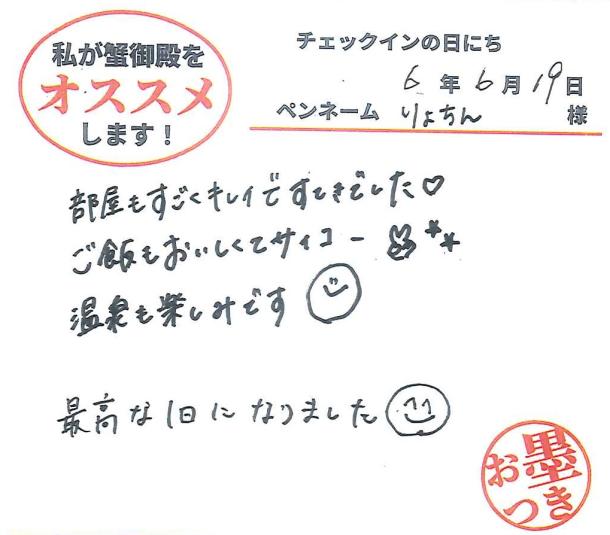 私が蟹御殿を
オススメ
します!
チェックインの日にち
6年6月19日
ペンネーム りょちん 様
部屋もすごくキレイですてきでした♡
ご飯もおいしくてサイコー
温泉も楽しみです
最高な1日になりました
お墨
つき